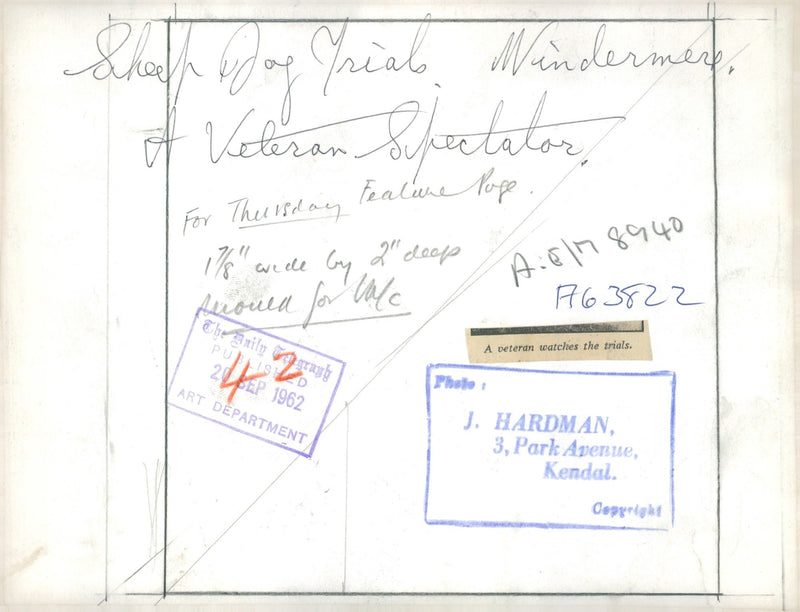 Sheep Dog Trials. Windermere.
A Veteran Spectator.
For Thursday Feature Page.
1 7/8" wide by 2" deep
mould for
A.E/M 8940
A63822
A veteran watches the trials.
The Daily Telegraph
PUBLISHED
20 SEP 1962
ART DEPARTMENT
42
Photo :
J. HARDMAN,
3, Park Avenue,
Kendal.
Copyright